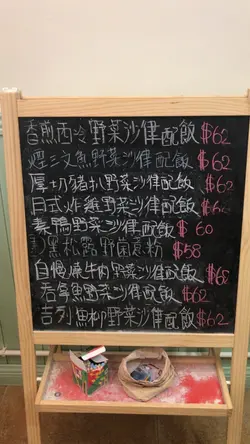 香煎西冷野菜沙律配飯 $62
煙三文魚野菜沙律配飯 $62
厚切豬扒野菜沙律配飯 $62
日式炸雞野菜沙律配飯 $62
素鴨野菜沙律配飯 $60
黑松露野菌意粉 $58
自慢燒牛肉野菜沙律配飯 $68
吞拿魚野菜沙律配飯 $62
吉列魚柳野菜沙律配飯 $62